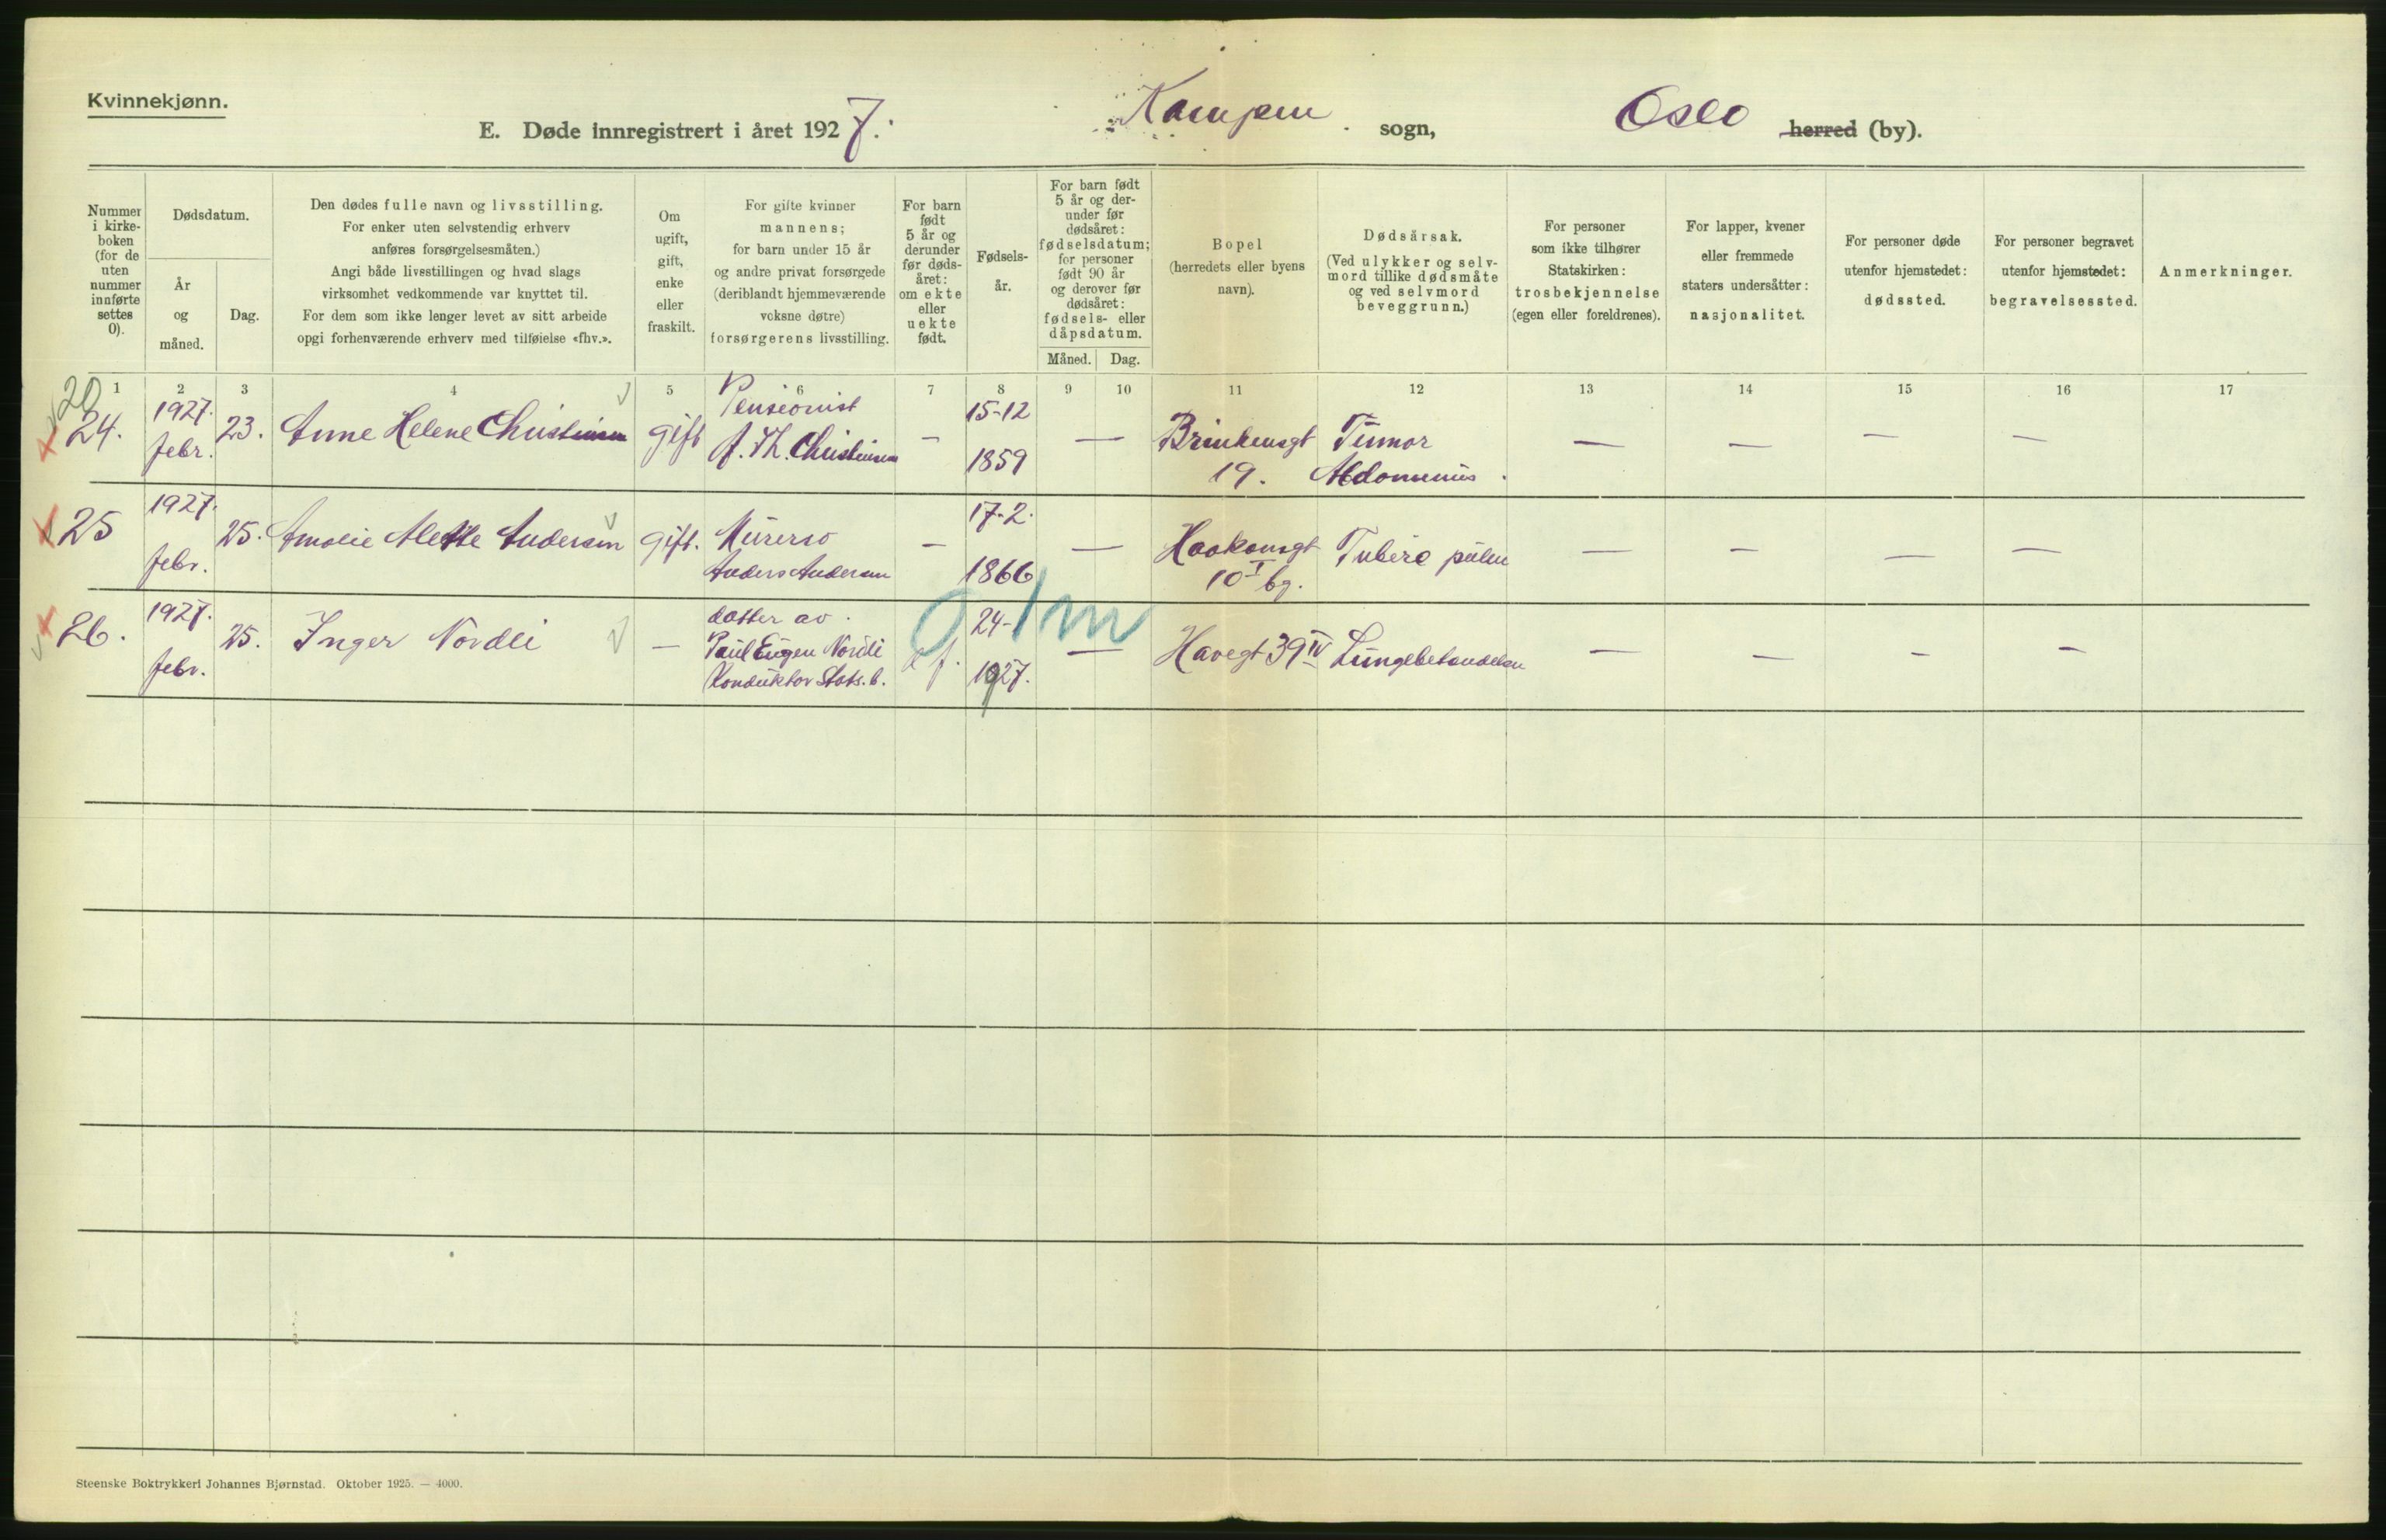 Kvinnekjønn.
E. Døde innregistrert i året 1927. Kampen sogn, Oslo herred (by).
Nummer i kirke-boken (for de uten nummer innførte settes 0).
Dødsdatum.
År og måned.
Dag.
Den dødes fulle navn og livsstilling.
For enker uten selvstendig erhverv
anføres forsørgelsesmåten.)
Angi både livsstillingen og hvad slags
virksomhet vedkommende var knyttet til.
For dem som ikke lenger levet av sitt arbeide
opgi forhenværende erhverv med tilføielse «fhv.».
Om
ugift,
gift,
enke
eller
fraskilt.
For gifte kvinner
mannens;
for barn under 15 år
og andre privat forsørgede
(deriblandt hjemmeværende
voksne døtre)
forsørgerens livsstilling.
For barn
født
5 år og
derunder
før døds-
året:
om ekte
eller
uekte
født.
Fødsels-
år.
For barn født
5 år og der-
under før
dødsåret:
fødselsdatum;
for personer
født 90 år
og derover før
dødsåret:
fødsels- eller
dåpsdatum.
Måned. Dag.
Bopel
(herredets eller byens
navn).
Dødsårsak.
(Ved ulykker og selv-
mord tillike dødsmåte
og ved selvmord
beveggrunn.)
For personer
som ikke tilhører
Statskirken:
trosbekjennelse
(egen eller foreldrenes).
For lapper, kvener
eller fremmede
staters undersåtter:
nasjonalitet.
For personer døde
utenfor hjemstedet:
dødssted.
For personer begravet
utenfor hjemstedet:
begravelsessted.
Anmerkninger.
1 2 3 4 5 6 7 8 9 10 11 12 13 14 15 16 17
20
24. 1927. febr. 23. Anne Helene Christensen gift Pensionist A. Th. Christensen — 15-12 1859 — Brinkensgt 19. Tumor Abdominis. — — — —
25 1927. febr. 25. Amalie Alette Andersen gift. Murersv Anders Andersen — 17-2. 1866 — Haakonsgt 10 I bg. Tuberc pulm — — — —
26. 1927. febr. 25. Inger Nordli — datter av Paul Eugen Nordli Konduktør Stats.b. 24- 1927. 0 1m — Havegt 39 IV Lungebetendelse — — — —
Steenske Boktrykkeri Johannes Bjørnstad. Oktober 1925. — 4000.